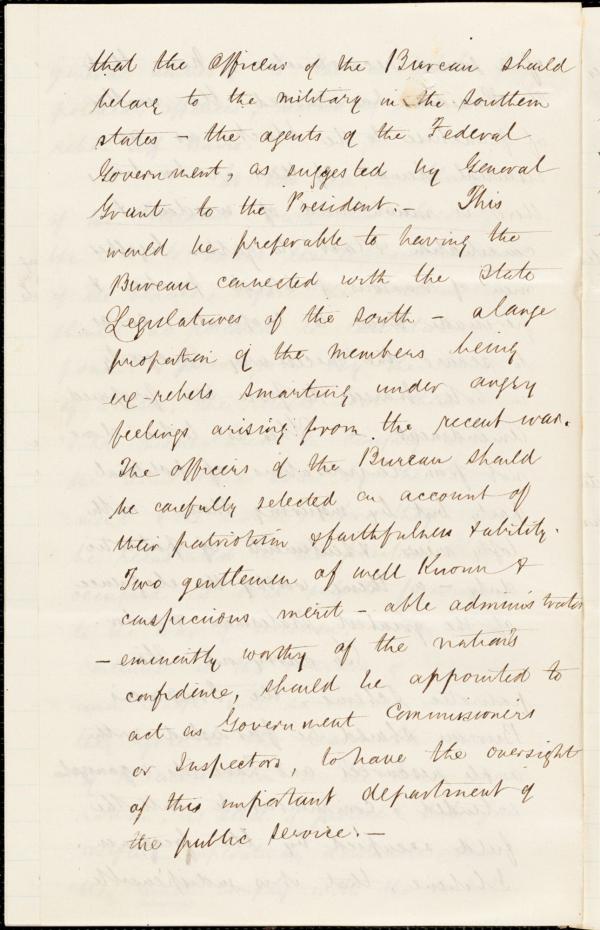 that the Officers of the Bureau should
belong to the military in the southern
states – the agents of the Federal
Government, as suggested by General
Grant to the President. – This
would be preferable to having the
Bureau connected with the State
Legislatures of the south – a large
proportion of the members being
ex-rebels smarting under angry
feelings arising from the recent war.
The officers of the Bureau should
be carefully selected on account of
their patriotism & faithfulness & ability.
Two gentlemen of well Known &
conspicuous merit – able administrators
– eminently worthy of the nation's
confidence, should be appointed to
act as Government Commissioners
or Inspectors, to have the oversight
of this important department of
the public service. –